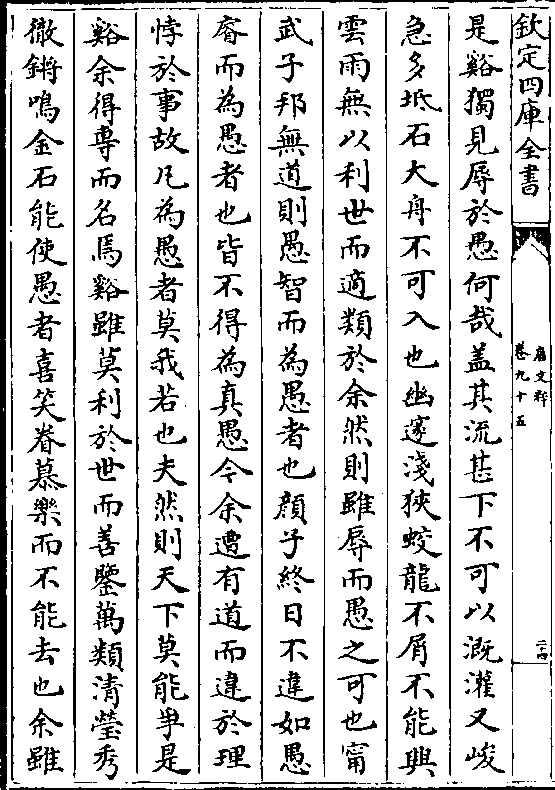 欽定四庫全書
唐文粹
卷九十五
二十四
是谿獨見辱於愚何哉盖其流甚下不可以溉灌又峻
急多坻石大舟不可入也幽邃淺狹蛟龍不屑不能興
雲雨無以利世而適類於余然則雖辱而愚之可也甯
武子邦無道則愚智而為愚者也顔子終日不違如愚
睿而為愚者也皆不得為真愚今余遭有道而違於理
悖於事故凡為愚者莫我若也夫然則天下莫能爭是
谿余得專而名焉谿雖莫利於世而善鑒萬類清瑩秀
徹鏘鳴金石能使愚者喜笑眷慕樂而不能去也余雖